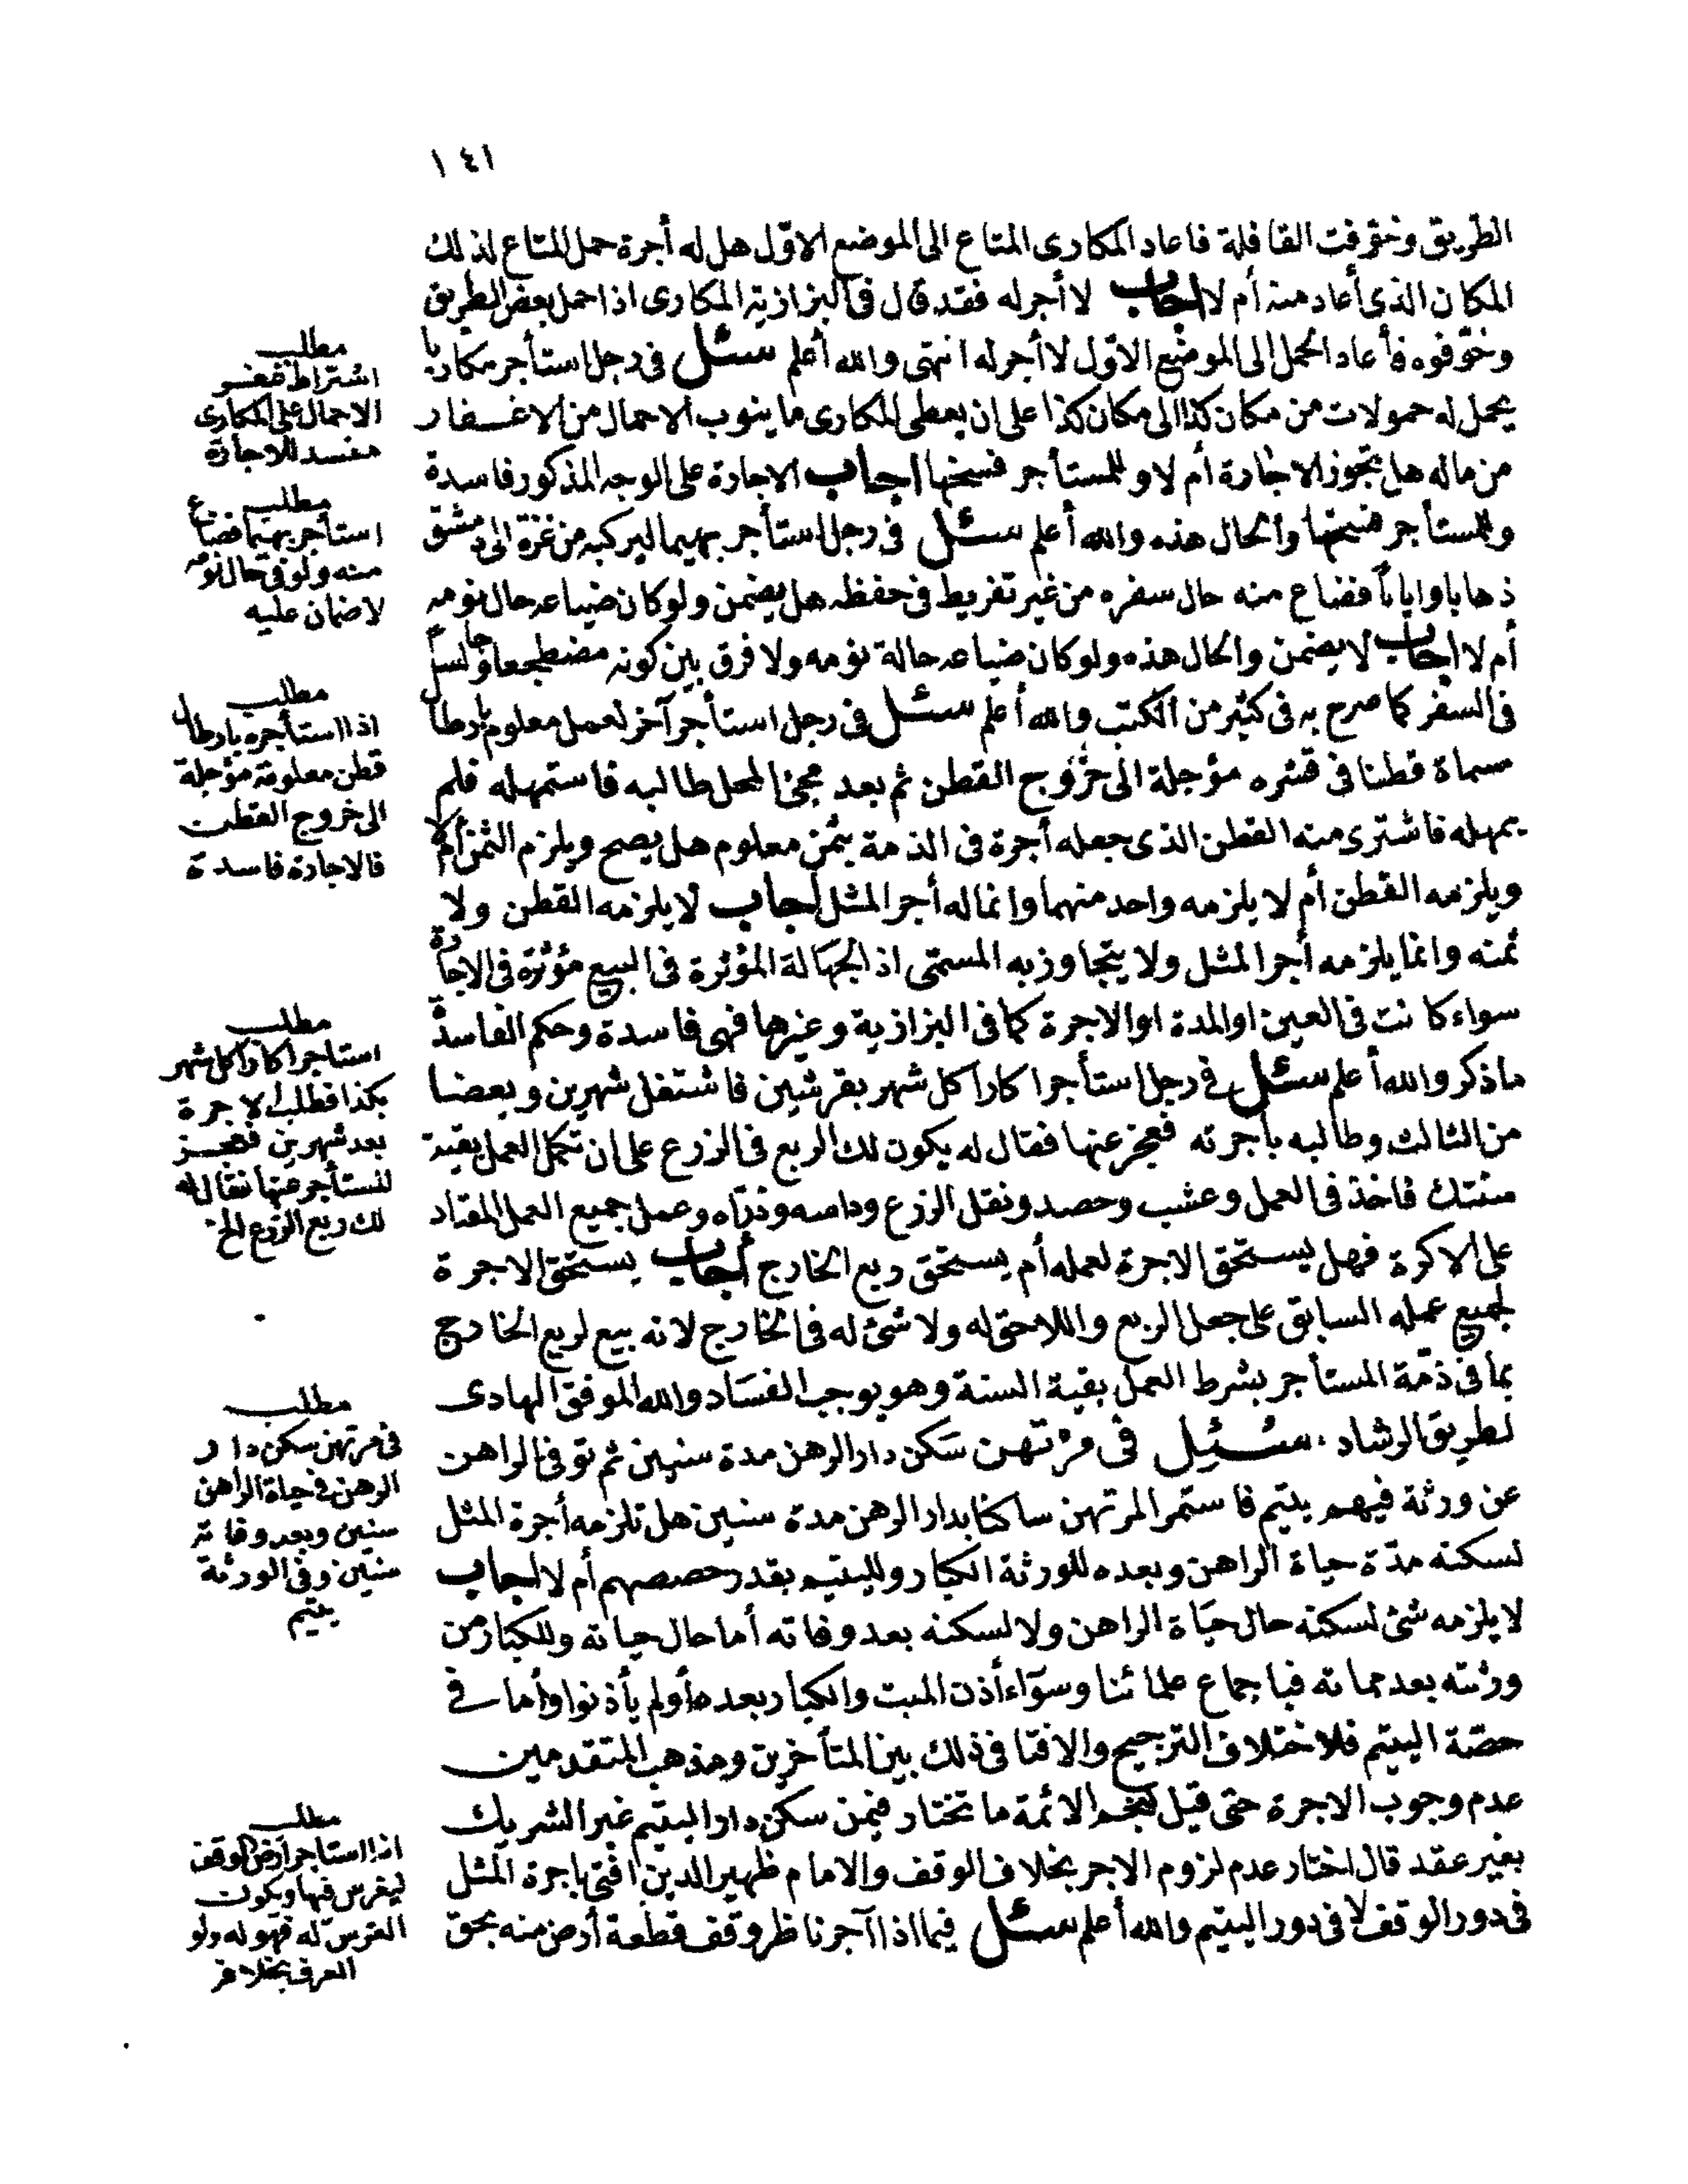 ١٤١
الطريق وخوفت القافلة فاعاد المكارى المتاع الى الموضع الاوّل هل له أجرة حمل المتاع لذلك
المكان الذى أعاد منه أم لا اجاب لا أجر له فقد قال فى البزازية المكارى اذا حمل بعض الطريق
وخوّفوه فأعاد الحمل الى الموضع الاوّل لا أجر له انتهى والله أعلم سئل فى رجل استأجر مكاريا
يحمل له حمولات من مكان كذا الى مكان كذا على ان يعطى المكارى ما ينوب الاحمال من الاغفار
من ماله هل تجوز الاجارة أم لا وللمستأجر فسخها اجاب الاجارة على الوجه المذكور فاسدة
وللمستأجر فسخها والحال هذه والله أعلم سئل فى رجل استأجر بهيما ليركبه من غزة الى دمشق
ذهابا وايابا فضاع منه حال سفره من غير تفريط فى حفظه هل يضمن ولو كان ضياعه حال نومه
أم لا اجاب لا يضمن والحال هذه ولو كان ضياعه حالة نومه ولا فرق بين كونه مضطجعا وجالسا
فى السفر كما صرح به فى كثير من الكتب والله أعلم سئل فى رجل استأجر آخر لعمل معلوم بارطال
مسماة قطنا فى قشره مؤجلة الى خروج القطن ثم بعد مجئ المحل طالبه فاستمهله فلم
يمهله فاشترى منه القطن الذى جعله أجرة فى الذمة بثمن معلوم هل يصح ويلزم الثمن أم لا
ويلزمه القطن أم لا يلزمه واحد منهما وانما له أجر المثل اجاب لا يلزمه القطن ولا
ثمنه وانما يلزمه أجر المثل ولا يتجاوز به المسمى اذ الجهالة المؤثرة فى البيع مؤثرة فى الاجارة
سواء كانت فى العين او المدة او الاجرة كما فى البزازية وغيرها فهى فاسدة وحكم الفاسدة
ما ذكر والله أعلم سئل فى رجل استأجر اكارا كل شهر بقرشين فاشتغل شهرين وبعضا
من الثالث وطالبه بأجرته فعجز عنها فقال له يكون لك الربع فى الزرع على ان تكمل العمل بقية
سنتك فاخذ فى العمل وعشب وحصد ونقل الزرع وداسه وذرّاه وعمل جميع العمل المعتاد
على الاكرة فهل يستحق الاجرة لعمله أم يستحق ربع الخارج أجاب يستحق الاجرة
لجميع عمله السابق على جعل الربع واللاحق له ولا شئ له فى الخارج لانه بيع لربع الخارج
بما فى ذمّة المستأجر بشرط العمل بقية السنة وهو يوجب الفساد والله الموفق الهادى
لطريق الرشاد . سئل فى مرتهن سكن دار الرهن مدة سنين ثم توفى الراهن
عن ورثة فيهم يتيم فاستمر المرتهن ساكنا بدار الرهن مدة سنين هل تلزمه أجرة المثل
لسكنه مدّة حياة الراهن وبعده للورثة الكبار ولليتيم بقدر حصصهم أم لا اجاب
لا يلزمه شئ لسكنه حال حياة الراهن ولا لسكنه بعد وفاته أما حال حياته وللكبار من
ورثته بعد مماته فباجماع علمائنا وسوآء أذن الميت والكبار بعده أو لم يأذنوا وأما فى
حصّة اليتيم فلاختلاف الترجيح والافتا فى ذلك بين المتأخرين ومذهب المتقدمين
عدم وجوب الاجرة حتى قيل لنجم الائمة ما تختار فيمن سكن دار اليتيم غير الشريك
بغير عقد قال اختار عدم لزوم الاجر بخلاف الوقف والامام ظهير الدين افتى باجرة المثل
فى دور الوقف لا فى دور اليتيم والله أعلم سئل فيما اذا آجر ناظر وقف قطعة أرض منه بحق
مطلب
اشتراط غفر
الاحمال على المكارى
مفسد للاجارة
مطلب
استأجر بهيما فضاع
منه ولو فى حال نومه
لا ضمان عليه
مطلب
اذا استأجره بارطال
قطن معلومة مؤجلة
الى خروج القطن
فالاجارة فاسدة
مطلب
استاجر اكارا كل شهر
بكذا فطلب الاجرة
بعد شهرين فعجز
المستأجر عنها فقال له
لك ربع الزرع الخ
مطلب
فى مرتهن سكن دار
الرهن فى حياة الراهن
سنين وبعد وفاته
سنين وفى الورثة
يتيم
مطلب
اذا استاجر ارض الوقف
ليغرس فيها ويكون
الغرس له فهو له ولو
العرف بخلافه